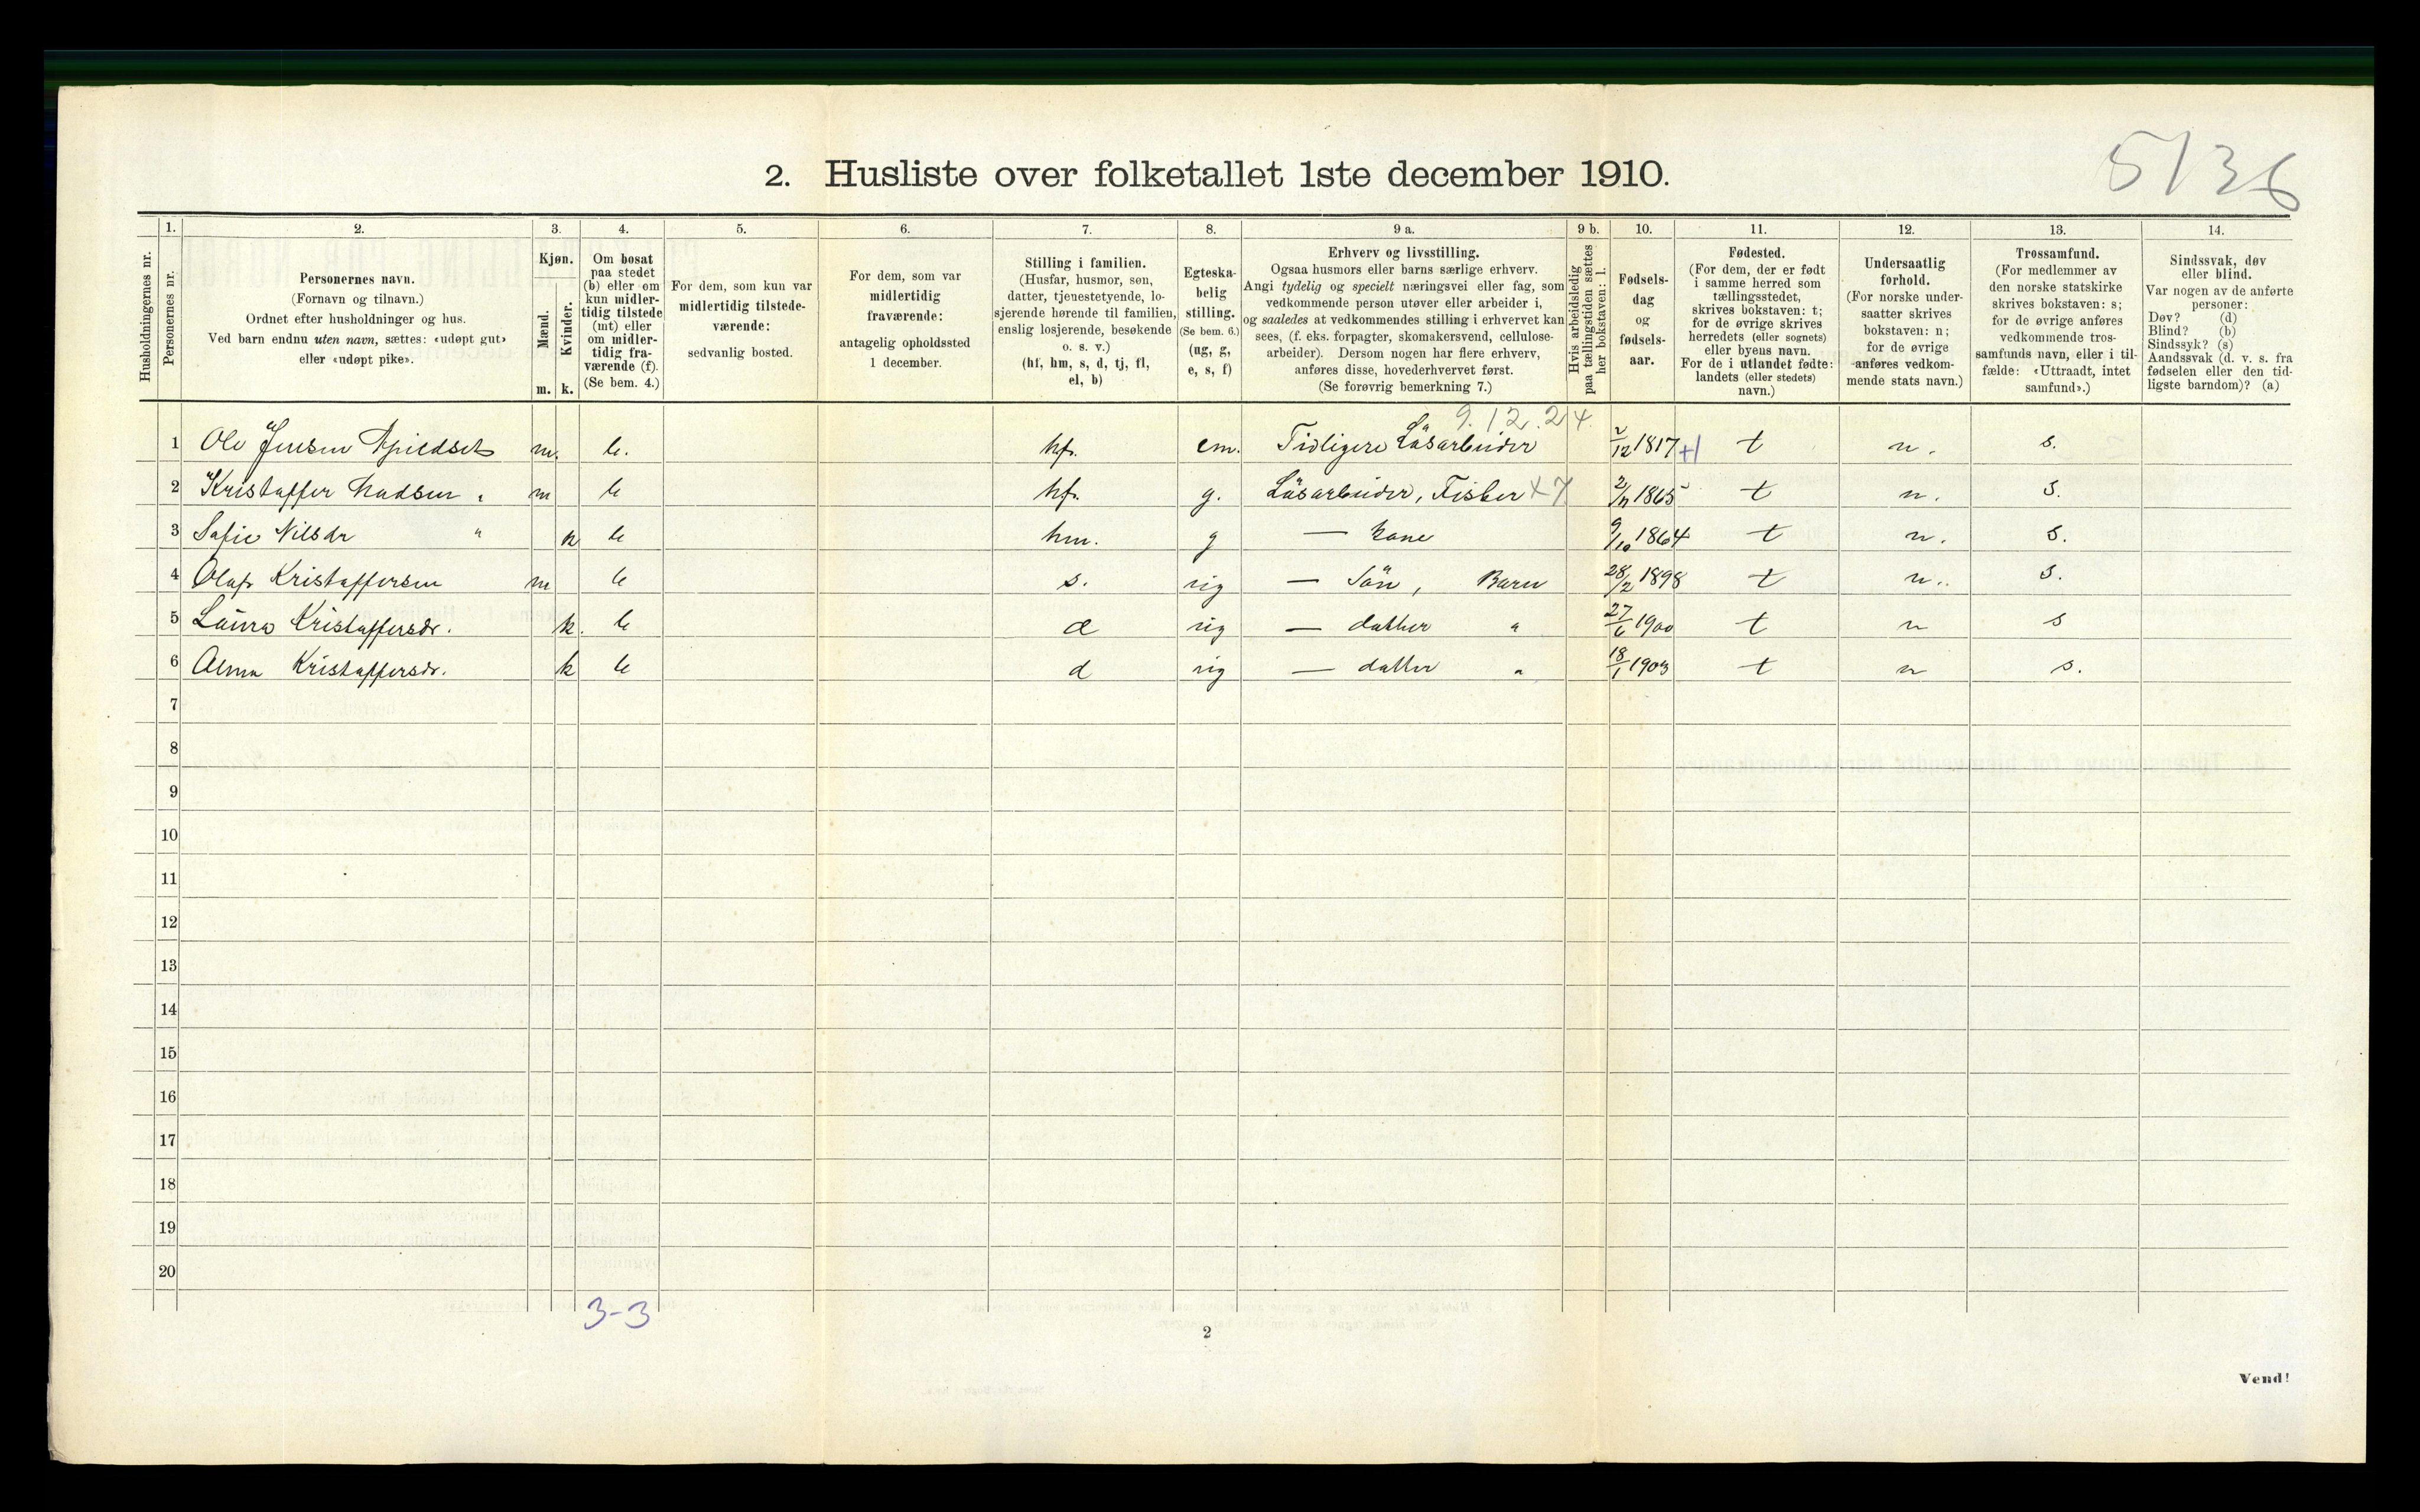 5136
2. Husliste over folketallet 1ste december 1910.
Husholdningernes nr.
1. Personernes nr.
2. Personernes navn. (Fornavn og tilnavn.) Ordnet efter husholdninger og hus. Ved barn endnu uten navn, sættes: «udøpt gut» eller «udøpt pike».
3. Kjøn. Mænd. m. Kvinder. k.
4. Om bosat paa stedet (b) eller om kun midlertidig tilstede (mt) eller om midlertidig fraværende (f). (Se bem. 4.)
5. For dem, som kun var midlertidig tilstedeværende: sedvanlig bosted.
6. For dem, som var midlertidig fraværende: antagelig opholdssted 1 december.
7. Stilling i familien. (Husfar, husmor, søn, datter, tjenestetyende, losjerende hørende til familien, enslig losjerende, besøkende o. s. v.) (hf, hm, s, d, tj, fl, el, b)
8. Egteskabelig stilling. (Se bem. 6.) (ug, g, e, s, f)
9 a. Erhverv og livsstilling. Ogsaa husmors eller barns særlige erhverv. Angi tydelig og specielt næringsvei eller fag, som vedkommende person utøver eller arbeider i, og saaledes at vedkommendes stilling i erhvervet kan sees, (f. eks. forpagter, skomakersvend, cellulosearbeider). Dersom nogen har flere erhverv, anføres disse, hovederhvervet først. (Se forøvrig bemerkning 7.)
9 b. Hvis arbeidsledig paa tællingstiden sættes her bokstaven: l.
10. Fødselsdag og fødselsaar.
11. Fødested. (For dem, der er født i samme herred som tællingsstedet, skrives bokstaven: t; for de øvrige skrives herredets (eller sognets) eller byens navn. For de i utlandet fødte: landets (eller stedets) navn.)
12. Undersaatlig forhold. (For norske undersaatter skrives bokstaven: n; for de øvrige anføres vedkommende stats navn.)
13. Trossamfund. (For medlemmer av den norske statskirke skrives bokstaven: s; for de øvrige anføres vedkommende trossamfunds navn, eller i tilfælde: «Uttraadt, intet samfund».)
14. Sindssvak, døv eller blind. Var nogen av de anførte personer: Døv? (d) Blind? (b) Sindssyk? (s) Aandssvak (d. v. s. fra fødselen eller den tidligste barndom)? (a)
9.12.24.
1 Ole Jensen m. b. hf. em. Tidligere Läsarbeider 2/12 1817 +1 t n. s.
2 Kristaffer Madsen " m b hf. g. Läsarbeider, Fisker x7 1865 t n. s.
3 Sofie Nilsdr " k b hm. g — Kone 9/10 1864 t n. s.
4 Olaf Kristaffersen m b s. ug — Sön, Barn 28/2 1898 t n.. s.
5 Laura Kristaffersdr. k. b d ug — datter " 27/6 1900 t n s
6 Alma Kristaffersdr. k b d ug — datter " 18/1 1903 t n s.
7
8
9
10
11
12
13
14
15
16
17
18
19
20
3-3
2
Vend!